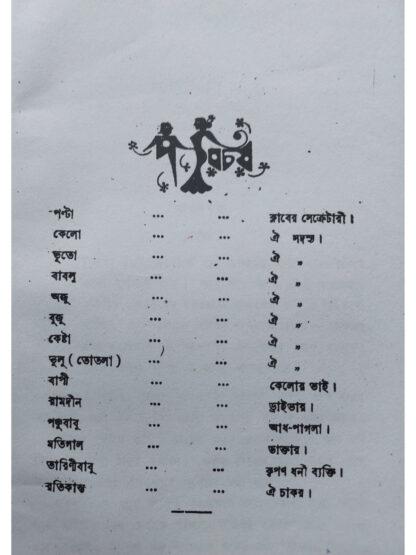 পরিচয়
পল্টা ... ... ক্লাবের সেক্রেটারী।
কেলো ... ... ঐ সদস্য।
ভূতো ... ... ঐ „
বাবলু ... ... ঐ „
অজু ... ... ঐ „
বুজু ... ... ঐ „
কেষ্টা ... ... ঐ „
ভুলু ( তোতলা ) ... ... ঐ „
বাপী ... ... কেলোর ভাই।
রামদীন ... ... ড্রাইভার।
পঞ্চুবাবু ... ... আধ-পাগলা।
মতিলাল ... ... ডাক্তার।
তারিণীবাবু ... ... কৃপণ ধনী ব্যক্তি।
রতিকান্ত ... ... ঐ চাকর।